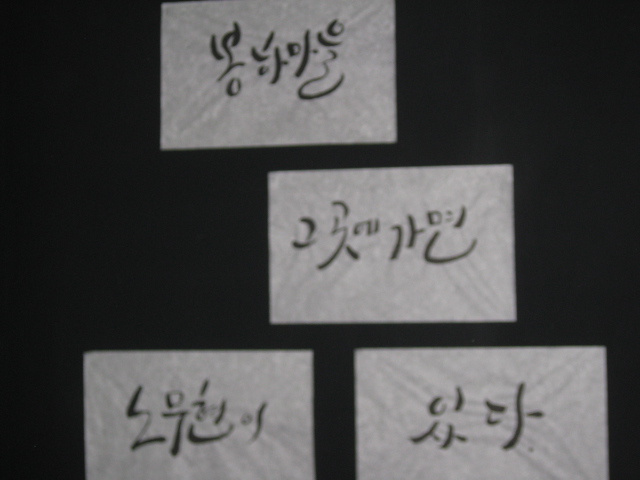 봉하마을
그곳에 가면
노무현이
있다